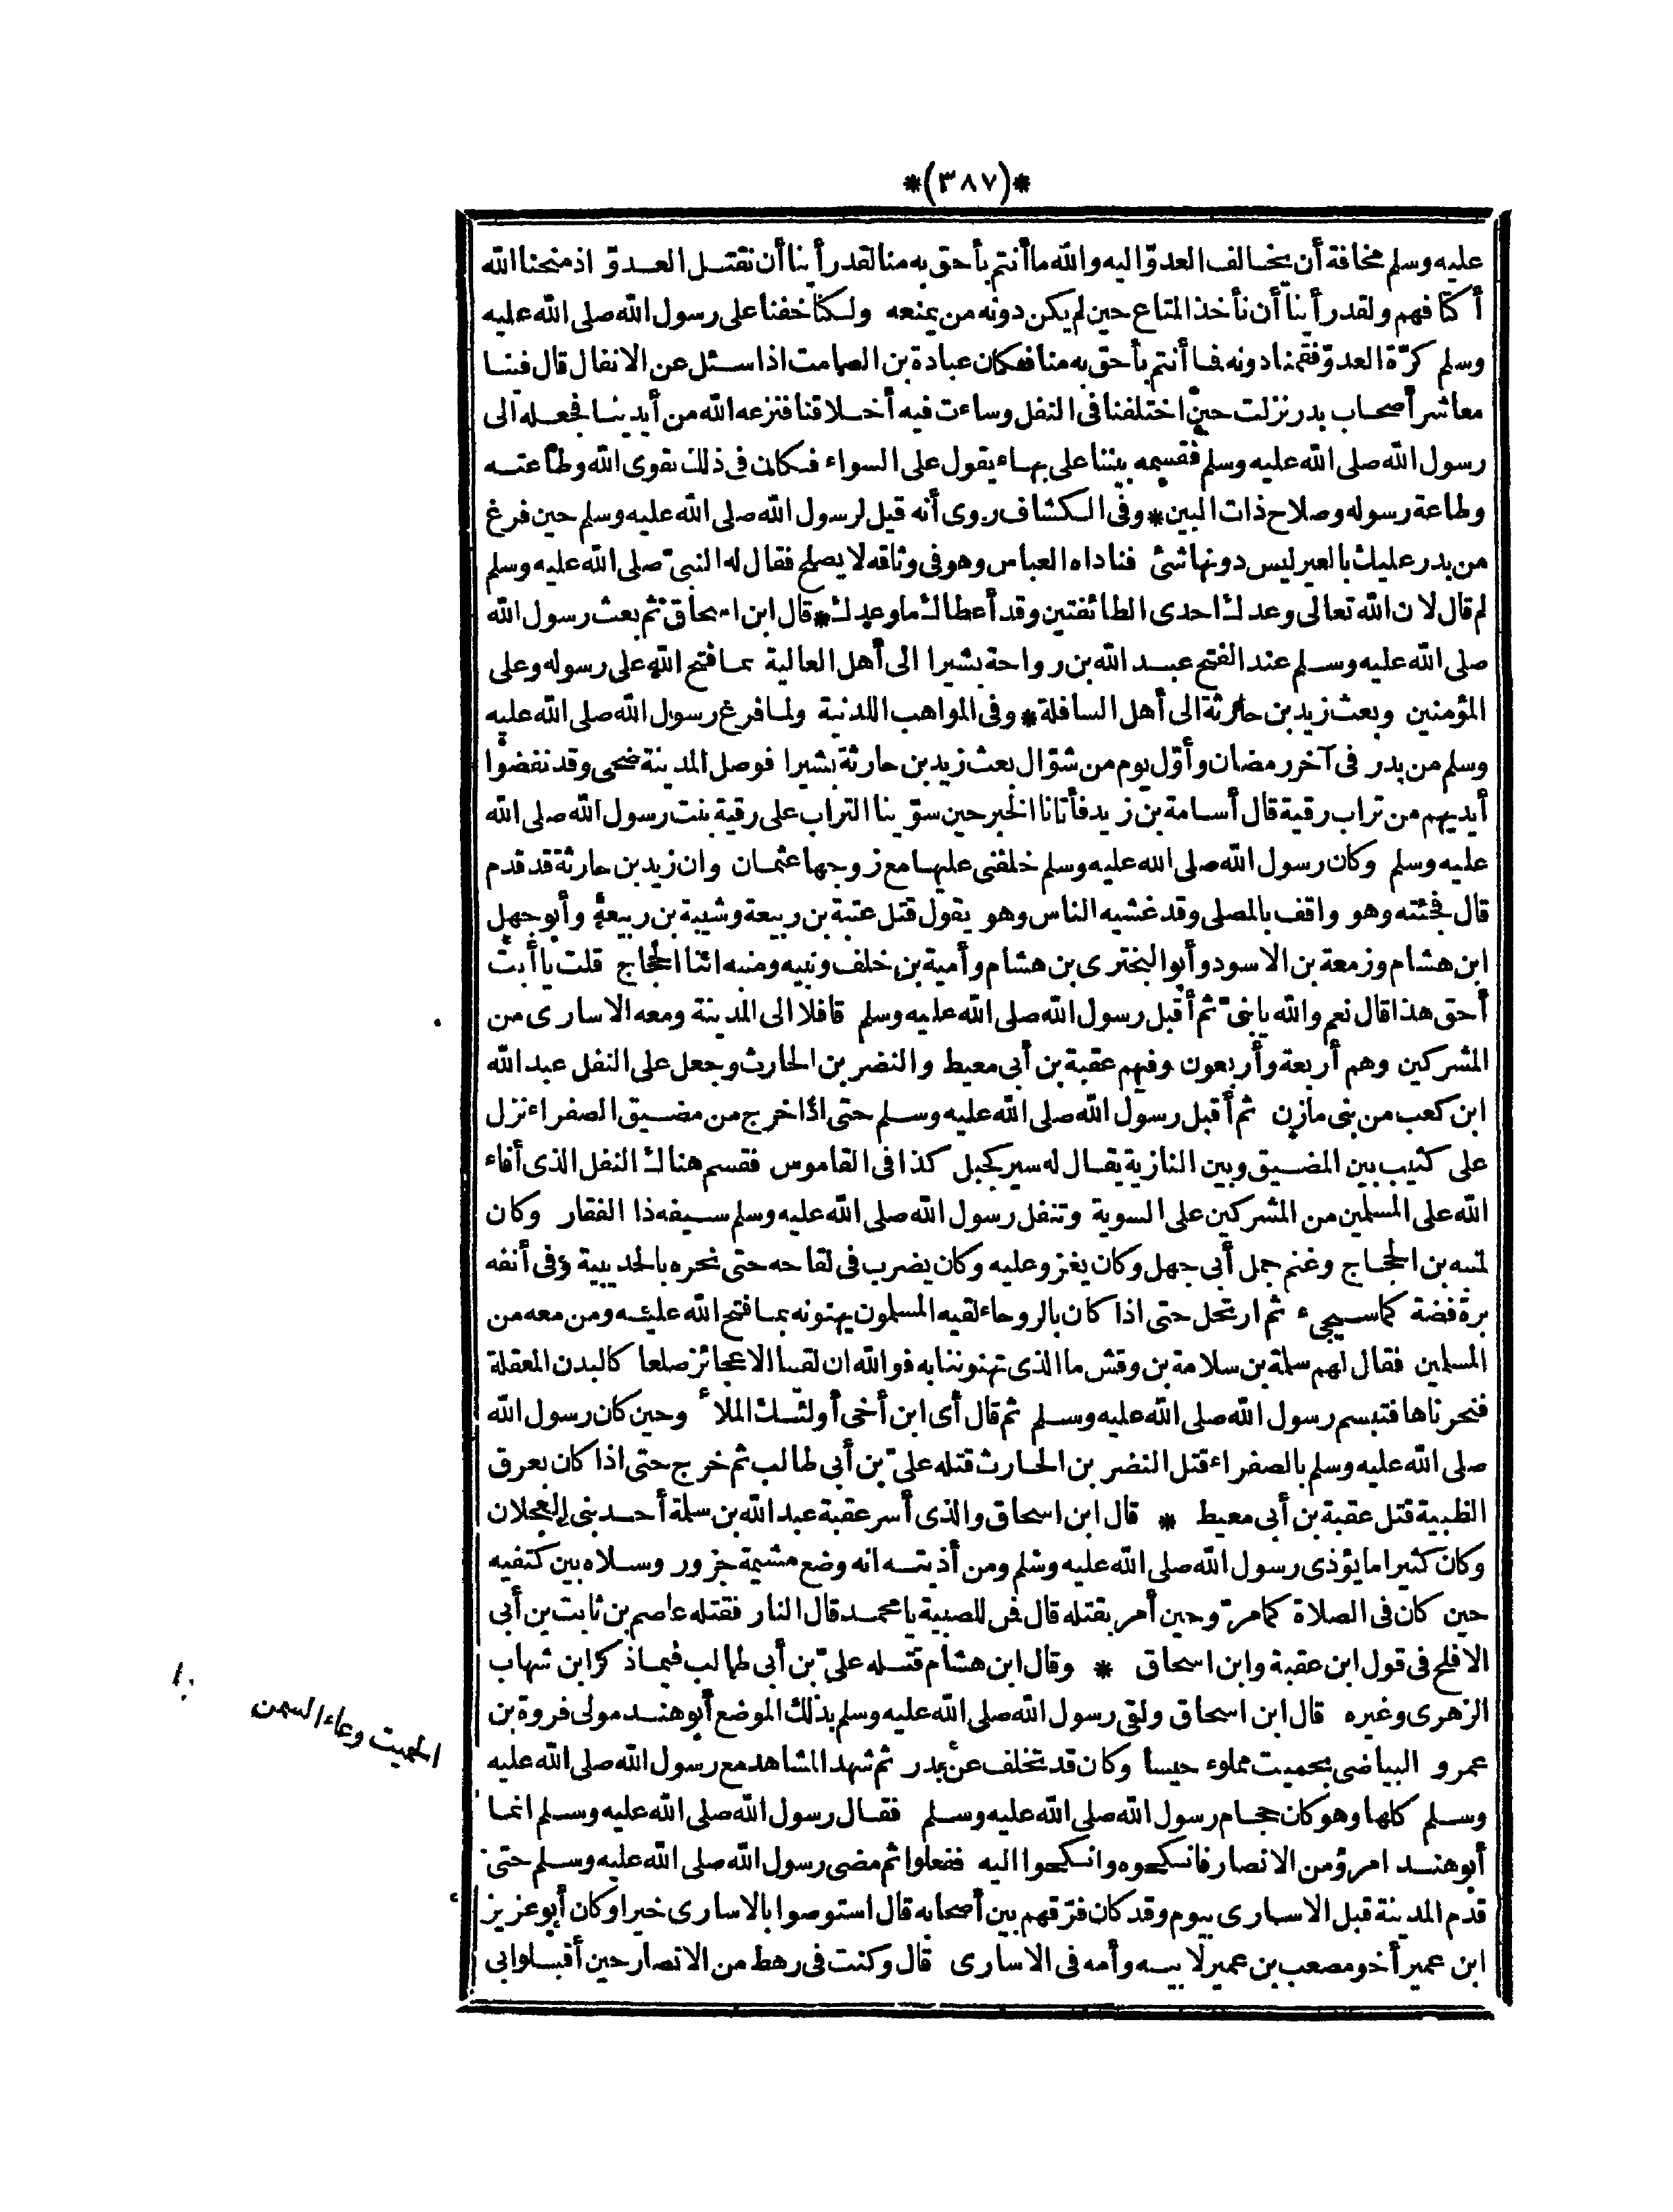 *(٣٨٧)*
عليه وسلم مخافة أن يخالف العدوّ اليه والله ما أنتم بأحق به منا لقد رأينا أن نقتل العدوّ اذ منحنا الله
أكتافهم ولقد رأينا أن نأخذ المتاع حين لم يكن دونه من يمنعه ولكنا خفنا على رسول الله صلى الله عليه
وسلم كرّة العدوّ فقمنا دونه فما أنتم بأحق به منا فكان عبادة بن الصامت اذا سئل عن الانفال قال فينا
معاشر أصحاب بدر نزلت حين اختلفنا فى النفل وساءت فيه أخلاقنا فنزعه الله من أيدينا فجعله الى
رسول الله صلى الله عليه وسلم فقسمه بيننا على بهاء يقول على السواء فكان فى ذلك تقوى الله وطاعته
وطاعة رسوله وصلاح ذات البين * وفى الكشاف روى أنه قيل لرسول الله صلى الله عليه وسلم حين فرغ
من بدر عليك بالعير ليس دونها شئ فناداه العباس وهو فى وثاقه لا يصلح فقال له النبىّ صلى الله عليه وسلم
لم قال لان الله تعالى وعدك احدى الطائفتين وقد أعطاك ما وعدك * قال ابن اسحاق ثم بعث رسول الله
صلى الله عليه وسلم عند الفتح عبد الله بن رواحة بشيرا الى أهل العالية بما فتح الله على رسوله وعلى
المؤمنين وبعث زيد بن حارثة الى أهل السافلة * وفى المواهب اللدنية ولما فرغ رسول الله صلى الله عليه
وسلم من بدر فى آخر رمضان وأوّل يوم من شوّال بعث زيد بن حارثة بشيرا فوصل المدينة ضحى وقد نفضوا
أيديهم من تراب رقية قال أسامة بن زيد فأتانا الخبر حين سوّينا التراب على رقية بنت رسول الله صلى الله
عليه وسلم وكان رسول الله صلى الله عليه وسلم خلفنى عليها مع زوجها عثمان وان زيد بن حارثة قد قدم
قال فجئته وهو واقف بالمصلى وقد غشيه الناس وهو يقول قتل عتبة بن ربيعة وشيبة بن ربيعة وأبو جهل
ابن هشام وزمعة بن الاسود وأبو البخترى بن هشام وأمية بن خلف ونبيه ومنبه اثنا الحجاج قلت يا أبت
أحق هذا قال نعم والله يا بنىّ ثم أقبل رسول الله صلى الله عليه وسلم قافلا الى المدينة ومعه الاسارى من
المشركين وهم أربعة وأربعون وفيهم عقبة بن أبى معيط والنضر بن الحارث وجعل على النفل عبد الله
ابن كعب من بنى مازن ثم أقبل رسول الله صلى الله عليه وسلم حتى اذا خرج من مضيق الصفراء نزل
على كثيب بين المضيق وبين النازية يقال له سير كجبل كذا فى القاموس فقسم هنالك النفل الذى أفاء
الله على المسلمين من المشركين على السوية وتنفل رسول الله صلى الله عليه وسلم سيفه ذا الفقار وكان
لمنبه بن الحجاج وغنم جمل أبى جهل وكان يغزو عليه وكان يضرب فى لقاحه حتى نحره بالحديبية وفى أنفه
برة فضة كما سيجىء ثم ارتحل حتى اذا كان بالروحاء لقيه المسلمون يهنونه بما فتح الله عليه ومن معه من
المسلمين فقال لهم سلمة بن سلامة بن وقش ما الذى تهنوننا به فوالله ان لقينا الا عجائز صلعا كالبدن المعقلة
فنحرناها فتبسم رسول الله صلى الله عليه وسلم ثم قال أى ابن أخى أولئك الملأ وحين كان رسول الله
صلى الله عليه وسلم بالصفراء قتل النضر بن الحارث قتله علىّ بن أبى طالب ثم خرج حتى اذا كان بعرق
الظبية قتل عقبة بن أبى معيط * قال ابن اسحاق والذى أسر عقبة عبد الله بن سلمة أحد بنى العجلان
وكان كثيرا ما يؤذى رسول الله صلى الله عليه وسلم ومن أذيته انه وضع مشيمة جزور وسلاه بين كتفيه
حين كان فى الصلاة كما مرّ وحين أمر بقتله قال فمن للصبية يا محمد قال النار فقتله عاصم بن ثابت بن أبى
الافلح فى قول ابن عقبة وابن اسحاق * وقال ابن هشام قتله علىّ بن أبى طالب فيما ذكر ابن شهاب
الزهرى وغيره قال ابن اسحاق ولقى رسول الله صلى الله عليه وسلم بذلك الموضع أبو هند مولى فروة بن
عمرو البياضى بحميت مملوء حيسا وكان قد تخلف عن بدر ثم شهد المشاهد مع رسول الله صلى الله عليه
الحميت وعاء السمن
وسلم كلها وهو كان حجام رسول الله صلى الله عليه وسلم فقال رسول الله صلى الله عليه وسلم انما
أبو هند امرؤ من الانصار فانكحوه وانكحوا اليه ففعلوا ثم مضى رسول الله صلى الله عليه وسلم حتى
قدم المدينة قبل الاسارى بيوم وقد كان فرّقهم بين أصحابه قال استوصوا بالاسارى خيرا وكان أبو عزيز
ابن عمير أخو مصعب بن عمير لابيه وأمه فى الاسارى قال وكنت فى رهط من الانصار حين أقبلوا بى